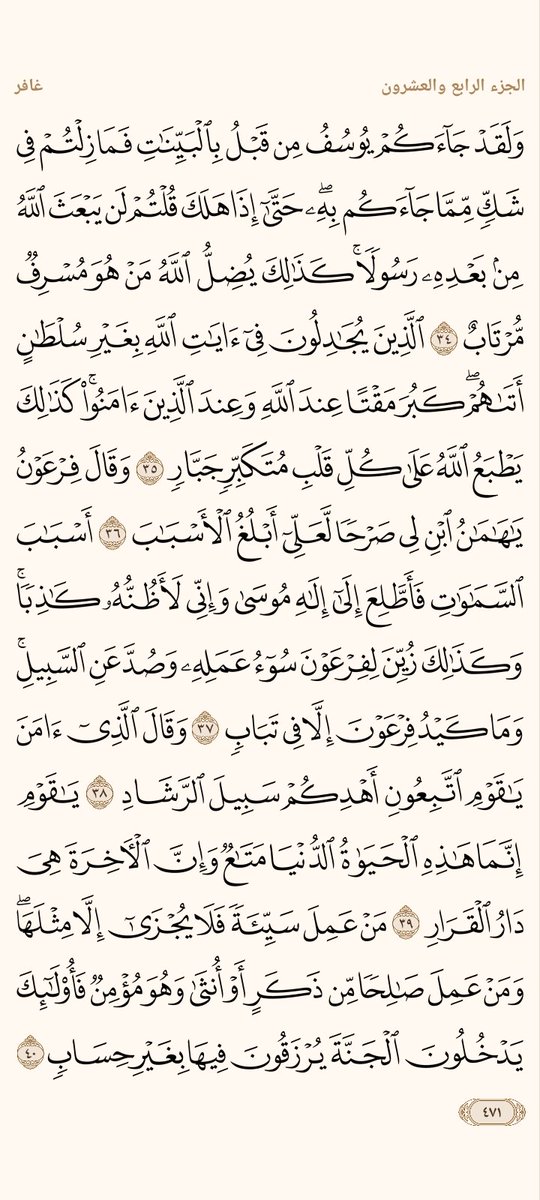 الجزء الرابع والعشرون
غافر
وَلَقَدۡ جَآءَكُمۡ يُوسُفُ مِن قَبۡلُ بِٱلۡبَيِّنَٰتِ فَمَا زِلۡتُمۡ فِي
شَكّٖ مِّمَّا جَآءَكُم بِهِۦۖ حَتَّىٰٓ إِذَا هَلَكَ قُلۡتُمۡ لَن يَبۡعَثَ ٱللَّهُ
مِنۢ بَعۡدِهِۦ رَسُولٗاۚ كَذَٰلِكَ يُضِلُّ ٱللَّهُ مَنۡ هُوَ مُسۡرِفٞ
مُّرۡتَابٌ ٣٤ ٱلَّذِينَ يُجَٰدِلُونَ فِيٓ ءَايَٰتِ ٱللَّهِ بِغَيۡرِ سُلۡطَٰنٍ
أَتَىٰهُمۡۖ كَبُرَ مَقۡتًا عِندَ ٱللَّهِ وَعِندَ ٱلَّذِينَ ءَامَنُواْۚ كَذَٰلِكَ
يَطۡبَعُ ٱللَّهُ عَلَىٰ كُلِّ قَلۡبِ مُتَكَبِّرٖ جَبَّارٖ ٣٥ وَقَالَ فِرۡعَوۡنُ
يَٰهَٰمَٰنُ ٱبۡنِ لِي صَرۡحٗا لَّعَلِّيٓ أَبۡلُغُ ٱلۡأَسۡبَٰبَ ٣٦ أَسۡبَٰبَ
ٱلسَّمَٰوَٰتِ فَأَطَّلِعَ إِلَىٰٓ إِلَٰهِ مُوسَىٰ وَإِنِّي لَأَظُنُّهُۥ كَٰذِبٗاۚ
وَكَذَٰلِكَ زُيِّنَ لِفِرۡعَوۡنَ سُوٓءُ عَمَلِهِۦ وَصُدَّ عَنِ ٱلسَّبِيلِۚ
وَمَا كَيۡدُ فِرۡعَوۡنَ إِلَّا فِي تَبَابٖ ٣٧ وَقَالَ ٱلَّذِيٓ ءَامَنَ
يَٰقَوۡمِ ٱتَّبِعُونِ أَهۡدِكُمۡ سَبِيلَ ٱلرَّشَادِ ٣٨ يَٰقَوۡمِ
إِنَّمَا هَٰذِهِ ٱلۡحَيَوٰةُ ٱلدُّنۡيَا مَتَٰعٞ وَإِنَّ ٱلۡأٓخِرَةَ هِيَ
دَارُ ٱلۡقَرَارِ ٣٩ مَنۡ عَمِلَ سَيِّئَةٗ فَلَا يُجۡزَىٰٓ إِلَّا مِثۡلَهَاۖ
وَمَنۡ عَمِلَ صَٰلِحٗا مِّن ذَكَرٍ أَوۡ أُنثَىٰ وَهُوَ مُؤۡمِنٞ فَأُوْلَٰٓئِكَ
يَدۡخُلُونَ ٱلۡجَنَّةَ يُرۡزَقُونَ فِيهَا بِغَيۡرِ حِسَابٖ ٤٠
٤٧١